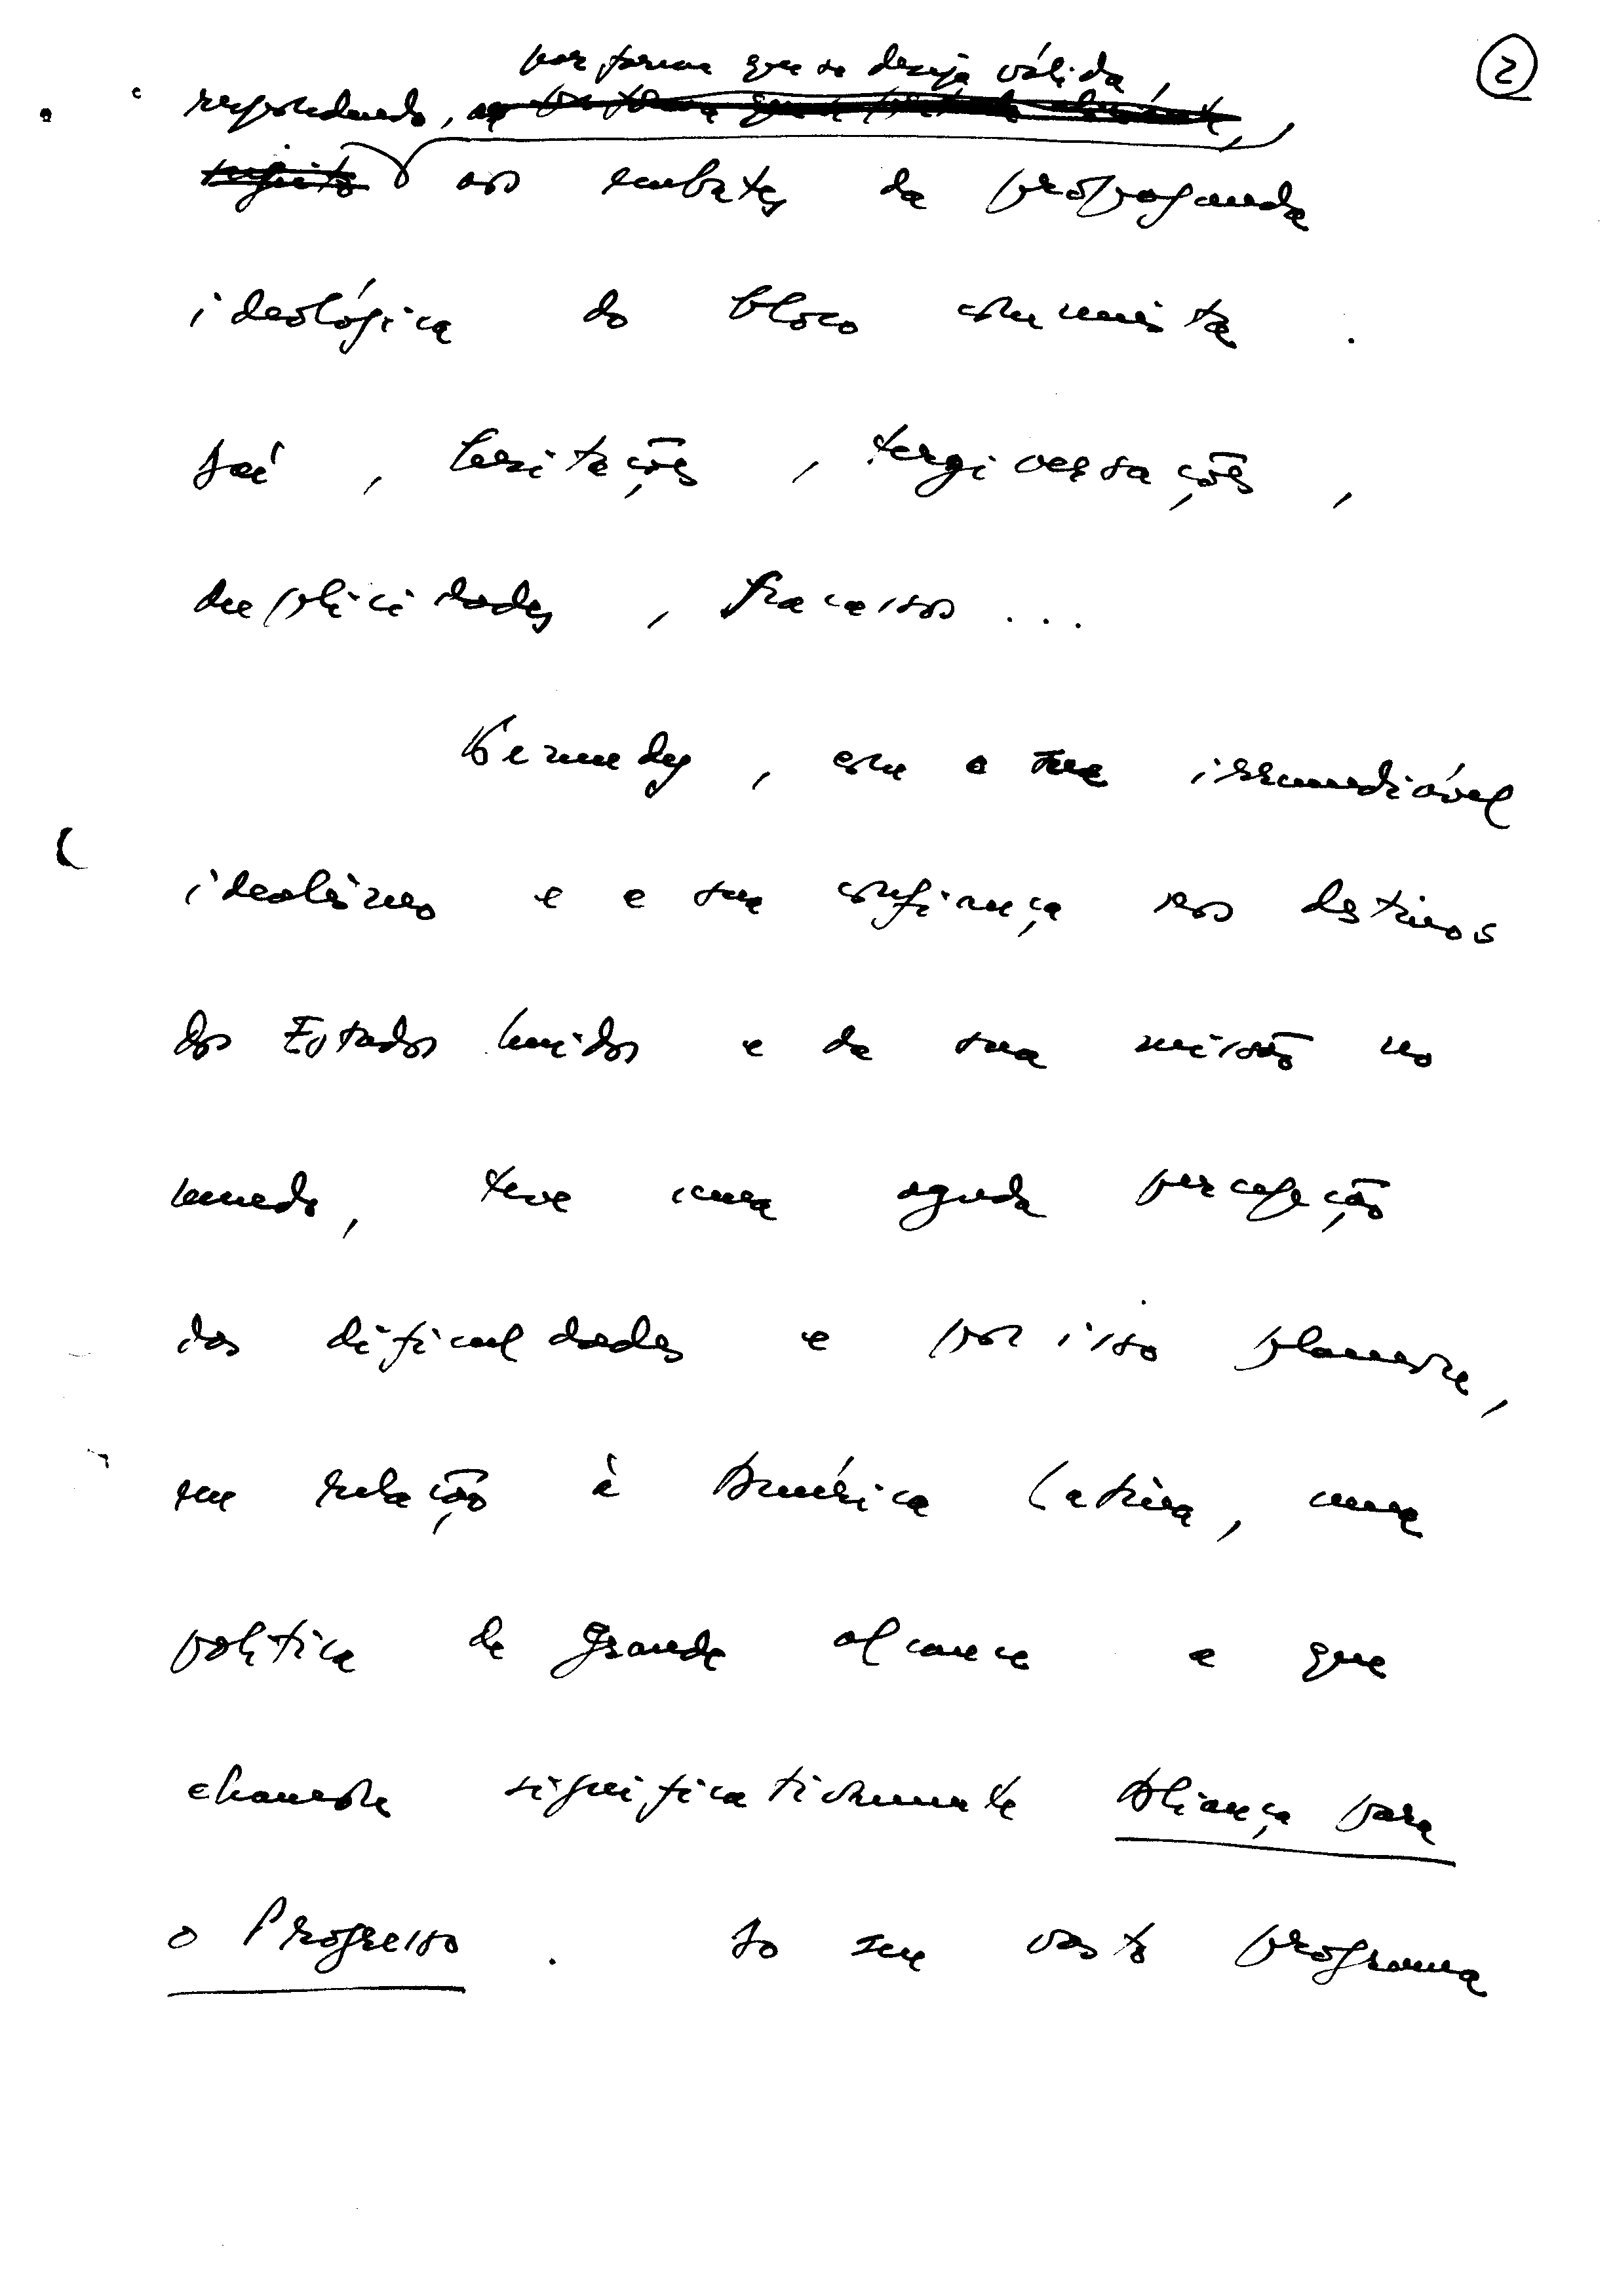 2
por forma que se deseja válida,
respondendo,
aos embates da propaganda
ideológica do bloco comunista.
Daí, hesitações, tergiversações,
duplicidades, fracassos...
Kennedy, com o seu irremediável
idealismo e a sua confiança nos destinos
dos Estados Unidos e da sua missão no
mundo, teve uma aguda percepção
das dificuldades e por isso planeara,
em relação à América Latina, uma
política de grande alcance a que
chamara significativamente Aliança para
o Progresso. Do seu vasto programa